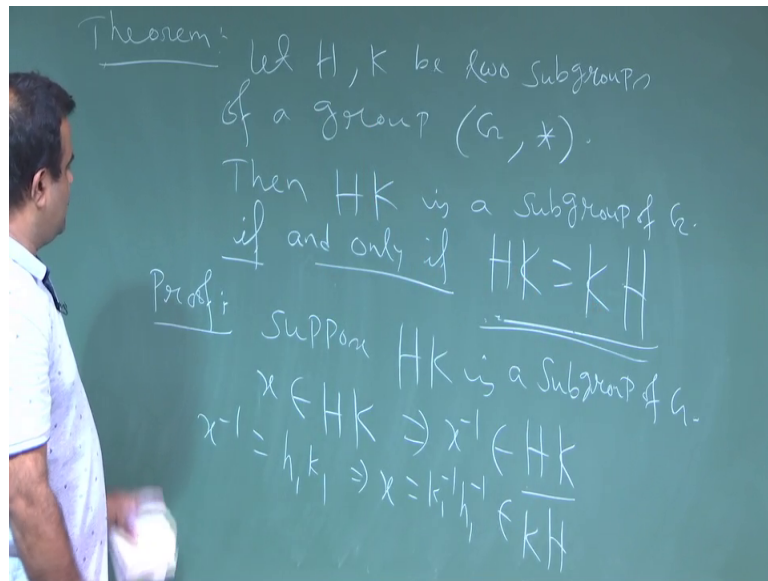 Theorem: Let H, K be two subgroups
of a group (G, *).
Then HK is a subgroup of G.
if and only if HK = KH
Proof: Suppose HK is a subgroup of G.
x ∈ HK ⇒ x⁻¹ ∈ HK
x⁻¹ = h₁k₁ ⇒ x = k₁⁻¹h₁⁻¹ ∈ KH